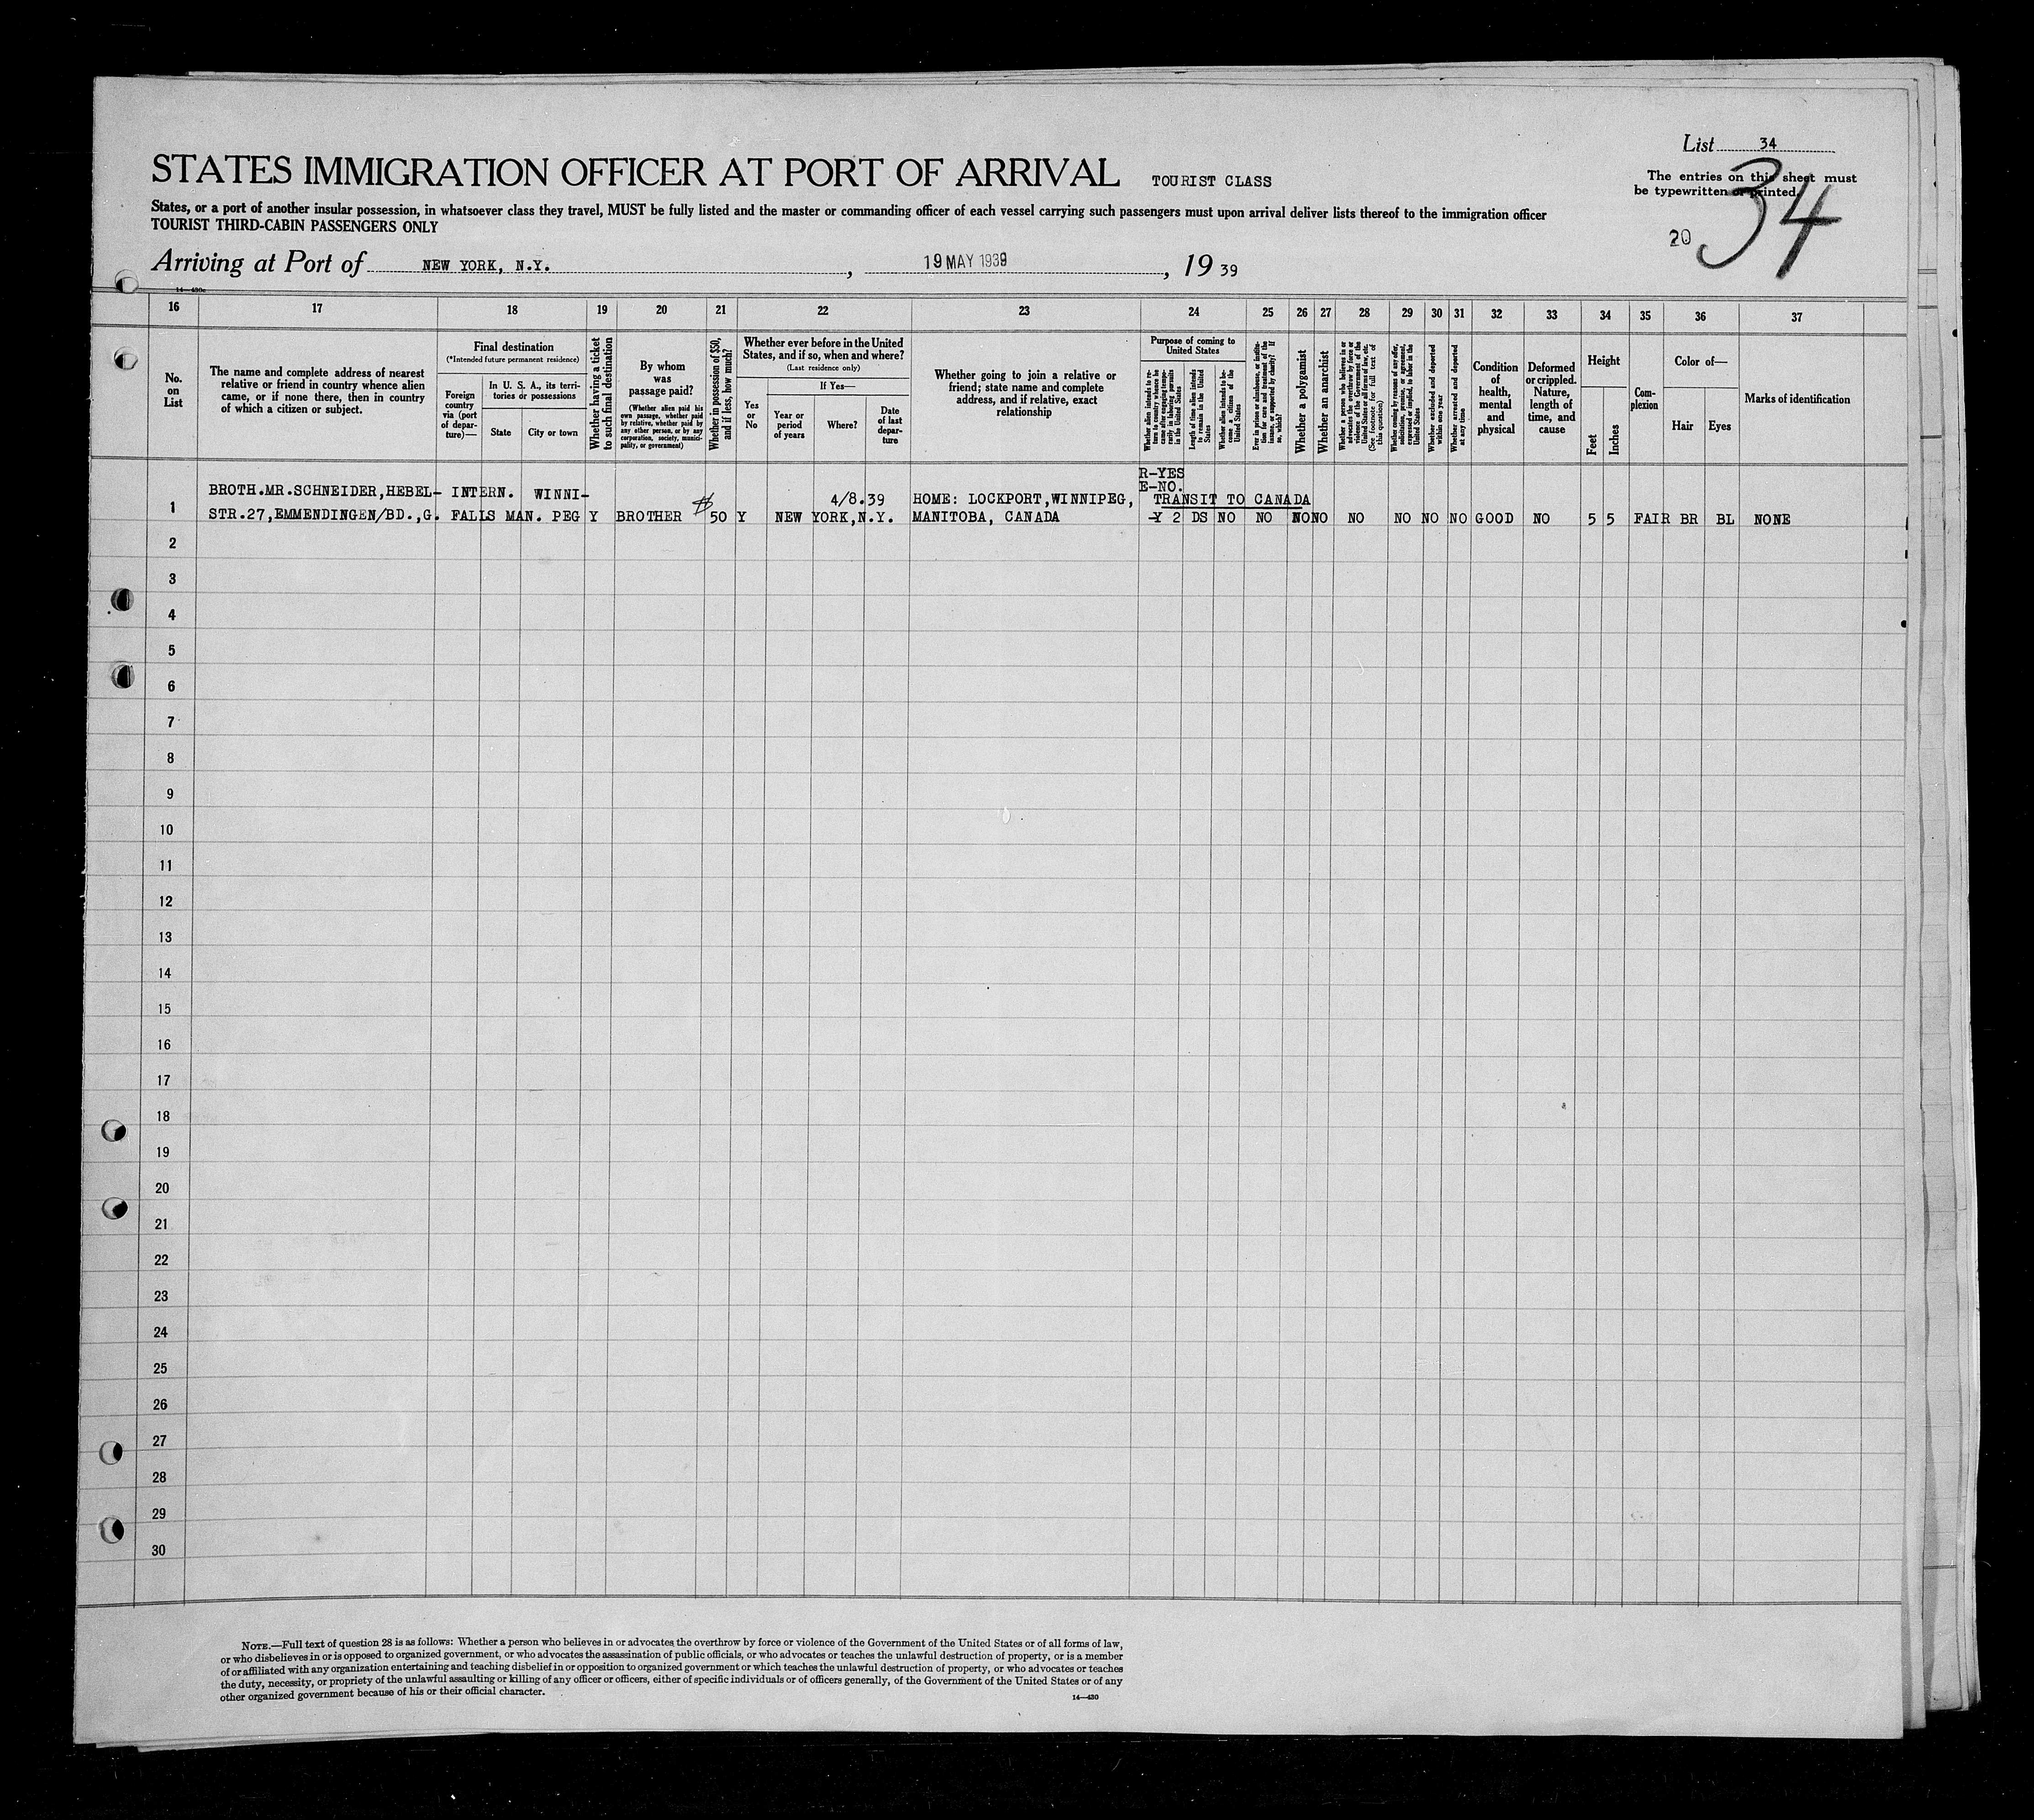 List 34
STATES IMMIGRATION OFFICER AT PORT OF ARRIVAL TOURIST CLASS
The entries on this sheet must
be typewritten or printed.
34
20
States, or a port of another insular possession, in whatsoever class they travel, MUST be fully listed and the master or commanding officer of each vessel carrying such passengers must upon arrival deliver lists thereof to the immigration officer
TOURIST THIRD-CABIN PASSENGERS ONLY
Arriving at Port of NEW YORK, N.Y. , 19 MAY 1939 , 19 39
14—430c
16 17 18 19 20 21 22 23 24 25 26 27 28 29 30 31 32 33 34 35 36 37
No.
on
List
The name and complete address of nearest
relative or friend in country whence alien
came, or if none there, then in country
of which a citizen or subject.
Final destination
(*Intended future permanent residence)
Foreign
country
via (port
of depar-
ture)—
In U. S. A., its terri-
tories or possessions
State
City or town
Whether having a ticket
to such final destination
By whom
was
passage paid?
(Whether alien paid his
own passage, whether paid
by relative, whether paid by
any other person, or by any
corporation, society, munici-
pality, or government)
Whether in possession of $50,
and if less, how much?
Whether ever before in the United
States, and if so, when and where?
(Last residence only)
Yes
or
No
If Yes—
Year or
period
of years
Where?
Date
of last
depar-
ture
Whether going to join a relative or
friend; state name and complete
address, and if relative, exact
relationship
Purpose of coming to
United States
Whether alien intends to re-
turn to country whence he
came after engaging tempo-
rarily in laboring pursuits
in the United States
Length of time alien intends
to remain in the United
States
Whether alien intends to be-
come a citizen of the
United States
Ever in prison or almshouse, or institu-
tion for care and treatment of the
insane, or supported by charity? If
so, which?
Whether a polygamist
Whether an anarchist
Whether a person who believes in or
advocates the overthrow by force or
violence of the Government of the
United States or all forms of law, etc.
(See footnote for full text of
this question)
Whether coming by reasons of any offer,
solicitation, promise, or agreement,
expressed or implied, to labor in the
United States
Whether excluded and deported
within one year
Whether arrested and deported
at any time
Condition
of
health,
mental
and
physical
Deformed
or crippled.
Nature,
length of
time, and
cause
Height
Feet
Inches
Com-
plexion
Color of—
Hair
Eyes
Marks of identification
R-YES
E-NO.
BROTH.MR.SCHNEIDER,HEBEL- INTERN. WINNI- 4/8.39 HOME: LOCKPORT,WINNIPEG, TRANSIT TO CANADA
1 STR.27,EMMENDINGEN/BD.,G. FALLS MAN. PEG Y BROTHER $ 50 Y NEW YORK,N.Y. MANITOBA, CANADA -Y 2 DS NO NO NO NO NO NO NO NO GOOD NO 5 5 FAIR BR BL NONE
2
3
4
5
6
7
8
9
10
11
12
13
14
15
16
17
18
19
20
21
22
23
24
25
26
27
28
29
30
NOTE.—Full text of question 28 is as follows: Whether a person who believes in or advocates the overthrow by force or violence of the Government of the United States or of all forms of law,
or who disbelieves in or is opposed to organized government, or who advocates the assassination of public officials, or who advocates or teaches the unlawful destruction of property, or is a member
of or affiliated with any organization entertaining and teaching disbelief in or opposition to organized government or which teaches the unlawful destruction of property, or who advocates or teaches
the duty, necessity, or propriety of the unlawful assaulting or killing of any officer or officers, either of specific individuals or of officers generally, of the Government of the United States or of any
other organized government because of his or their official character.
14—430